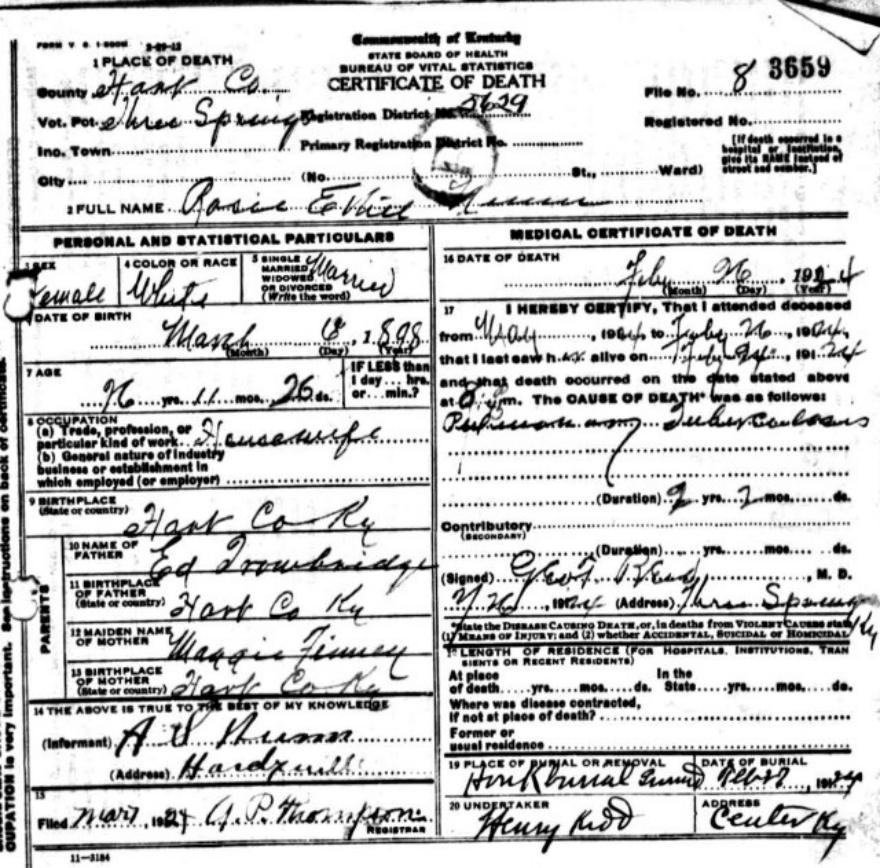 FORM V. S. 1-500M 2-29-12
Commonwealth of Kentucky
STATE BOARD OF HEALTH
BUREAU OF VITAL STATISTICS
CERTIFICATE OF DEATH
1 PLACE OF DEATH
County Hart Co.
File No. 8 3659
Vot. Pct. Three Springs Registration District No. 5629
Registered No.
Inc. Town Primary Registration District No.
[If death occurred in a hospital or institution, give its NAME instead of street and number.]
City (No. St., Ward)
2 FULL NAME Rosie
PERSONAL AND STATISTICAL PARTICULARS
3 SEX Female
4 COLOR OR RACE White
5 SINGLE MARRIED WIDOWED OR DIVORCED (Write the word) Married
DATE OF BIRTH
March 1898
(Month) (Day) (Year)
7 AGE
IF LESS than 1 day ... hrs. or ... min.?
yrs. 11 mos. 26 ds.
8 OCCUPATION
(a) Trade, profession, or particular kind of work Housewife
(b) General nature of industry business or establishment in which employed (or employer)
9 BIRTHPLACE (State or country) Hart Co Ky
PARENTS
10 NAME OF FATHER Ed Trowbridge
11 BIRTHPLACE OF FATHER (State or country) Hart Co Ky
12 MAIDEN NAME OF MOTHER Maggie Finney
13 BIRTHPLACE OF MOTHER (State or country) Hart Co Ky
14 THE ABOVE IS TRUE TO THE BEST OF MY KNOWLEDGE
(Informant) A S Nunn
(Address)
15
Filed Mar 7, 1924 P. Thompson
REGISTRAR
11-3184
MEDICAL CERTIFICATE OF DEATH
16 DATE OF DEATH
Feby 26, 1924
(Month) (Day) (Year)
17 I HEREBY CERTIFY, That I attended deceased
from May, 19 to Feby 26, 1924,
that I last saw h er alive on Feby 24, 1924
and that death occurred on the date stated above
at m. The CAUSE OF DEATH* was as follows:
Pulmonary Tuberculosis
(Duration) 2 yrs. 2 mos. ds.
Contributory
(SECONDARY)
(Duration) yrs. mos. ds.
(Signed) Geo T, M. D.
, 1924 (Address) Three Springs Ky
*State the DISEASE CAUSING DEATH, or, in deaths from VIOLENT CAUSES state
(1) MEANS OF INJURY; and (2) whether ACCIDENTAL, SUICIDAL or HOMICIDAL
LENGTH OF RESIDENCE (FOR HOSPITALS, INSTITUTIONS, TRANSIENTS OR RECENT RESIDENTS)
At place of death yrs. mos. ds. In the State yrs. mos. ds.
Where was disease contracted, if not at place of death?
Former or usual residence
19 PLACE OF BURIAL OR REMOVAL burial
DATE OF BURIAL 1924
20 UNDERTAKER Henry Kidd
ADDRESS Center Ky
OCCUPATION is very important. See instructions on back of certificate.